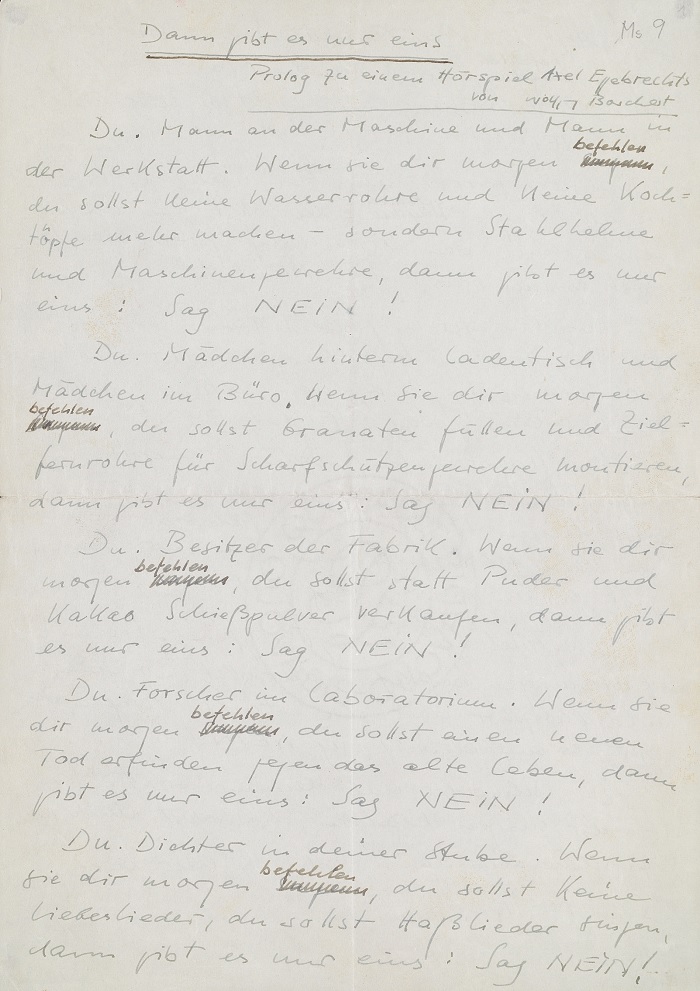 Dann gibt es nur eins
Ms 9
Prolog zu einem Hörspiel Axel Eggebrechts
von Wolfg Borchert
Du. Mann an der Maschine und Mann in
der Werkstatt. Wenn sie dir morgen befehlen,
du sollst keine Wasserrohre und keine Koch=
töpfe mehr machen – sondern Stahlhelme
und Maschinengewehre, dann gibt es nur
eins : Sag NEIN !
Du. Mädchen hinterm Ladentisch und
Mädchen im Büro. Wenn sie dir morgen
befehlen, du sollst Granaten füllen und Ziel=
fernrohre für Scharfschützengewehre montieren,
dann gibt es nur eins : Sag NEIN !
Du. Besitzer der Fabrik. Wenn sie dir
morgen befehlen, du sollst statt Puder und
Kakao Schießpulver verkaufen, dann gibt
es nur eins : Sag NEIN !
Du. Forscher im Laboratorium. Wenn sie
dir morgen befehlen, du sollst einen neuen
Tod erfinden gegen das alte Leben, dann
gibt es nur eins : Sag NEIN !
Du. Dichter in deiner Stube. Wenn
sie dir morgen befehlen, du sollst keine
Liebeslieder, du sollst Haßlieder singen,
dann gibt es nur eins : Sag NEIN !